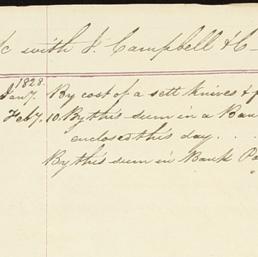 c with J. Campbell & C
1828.
Jany. By cost of a sett knives & f
Feby. 10. By this sum in a Ban
enclosed this day. . .
By this sum in Bank Po
"